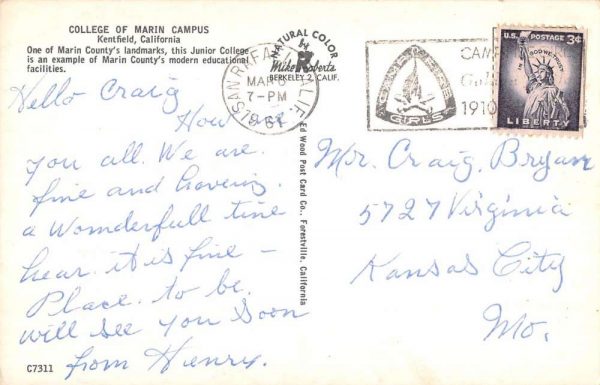 COLLEGE OF MARIN CAMPUS
Kentfield, California
One of Marin County's landmarks, this Junior College
is an example of Marin County's modern educational
facilities.
Hello Craig
How
you all. We are
fine and havening
a Womderfull time
hear. it is fine —
Place to be.
will see you soon
from Henry.
C7311
NATURAL COLOR
by
Mike Roberts
BERKELEY 2, CALIF.
Ed Wood Post Card Co., Forestville, California
SAN RAFAEL CALIF.
MAR
7-PM
CAMP
GIRLS
1910
U.S. POSTAGE 3¢
IN GOD WE TRUST
LIBERTY
Mr. Craig Bryan
5727 Virginia
Kansas City
Mo.